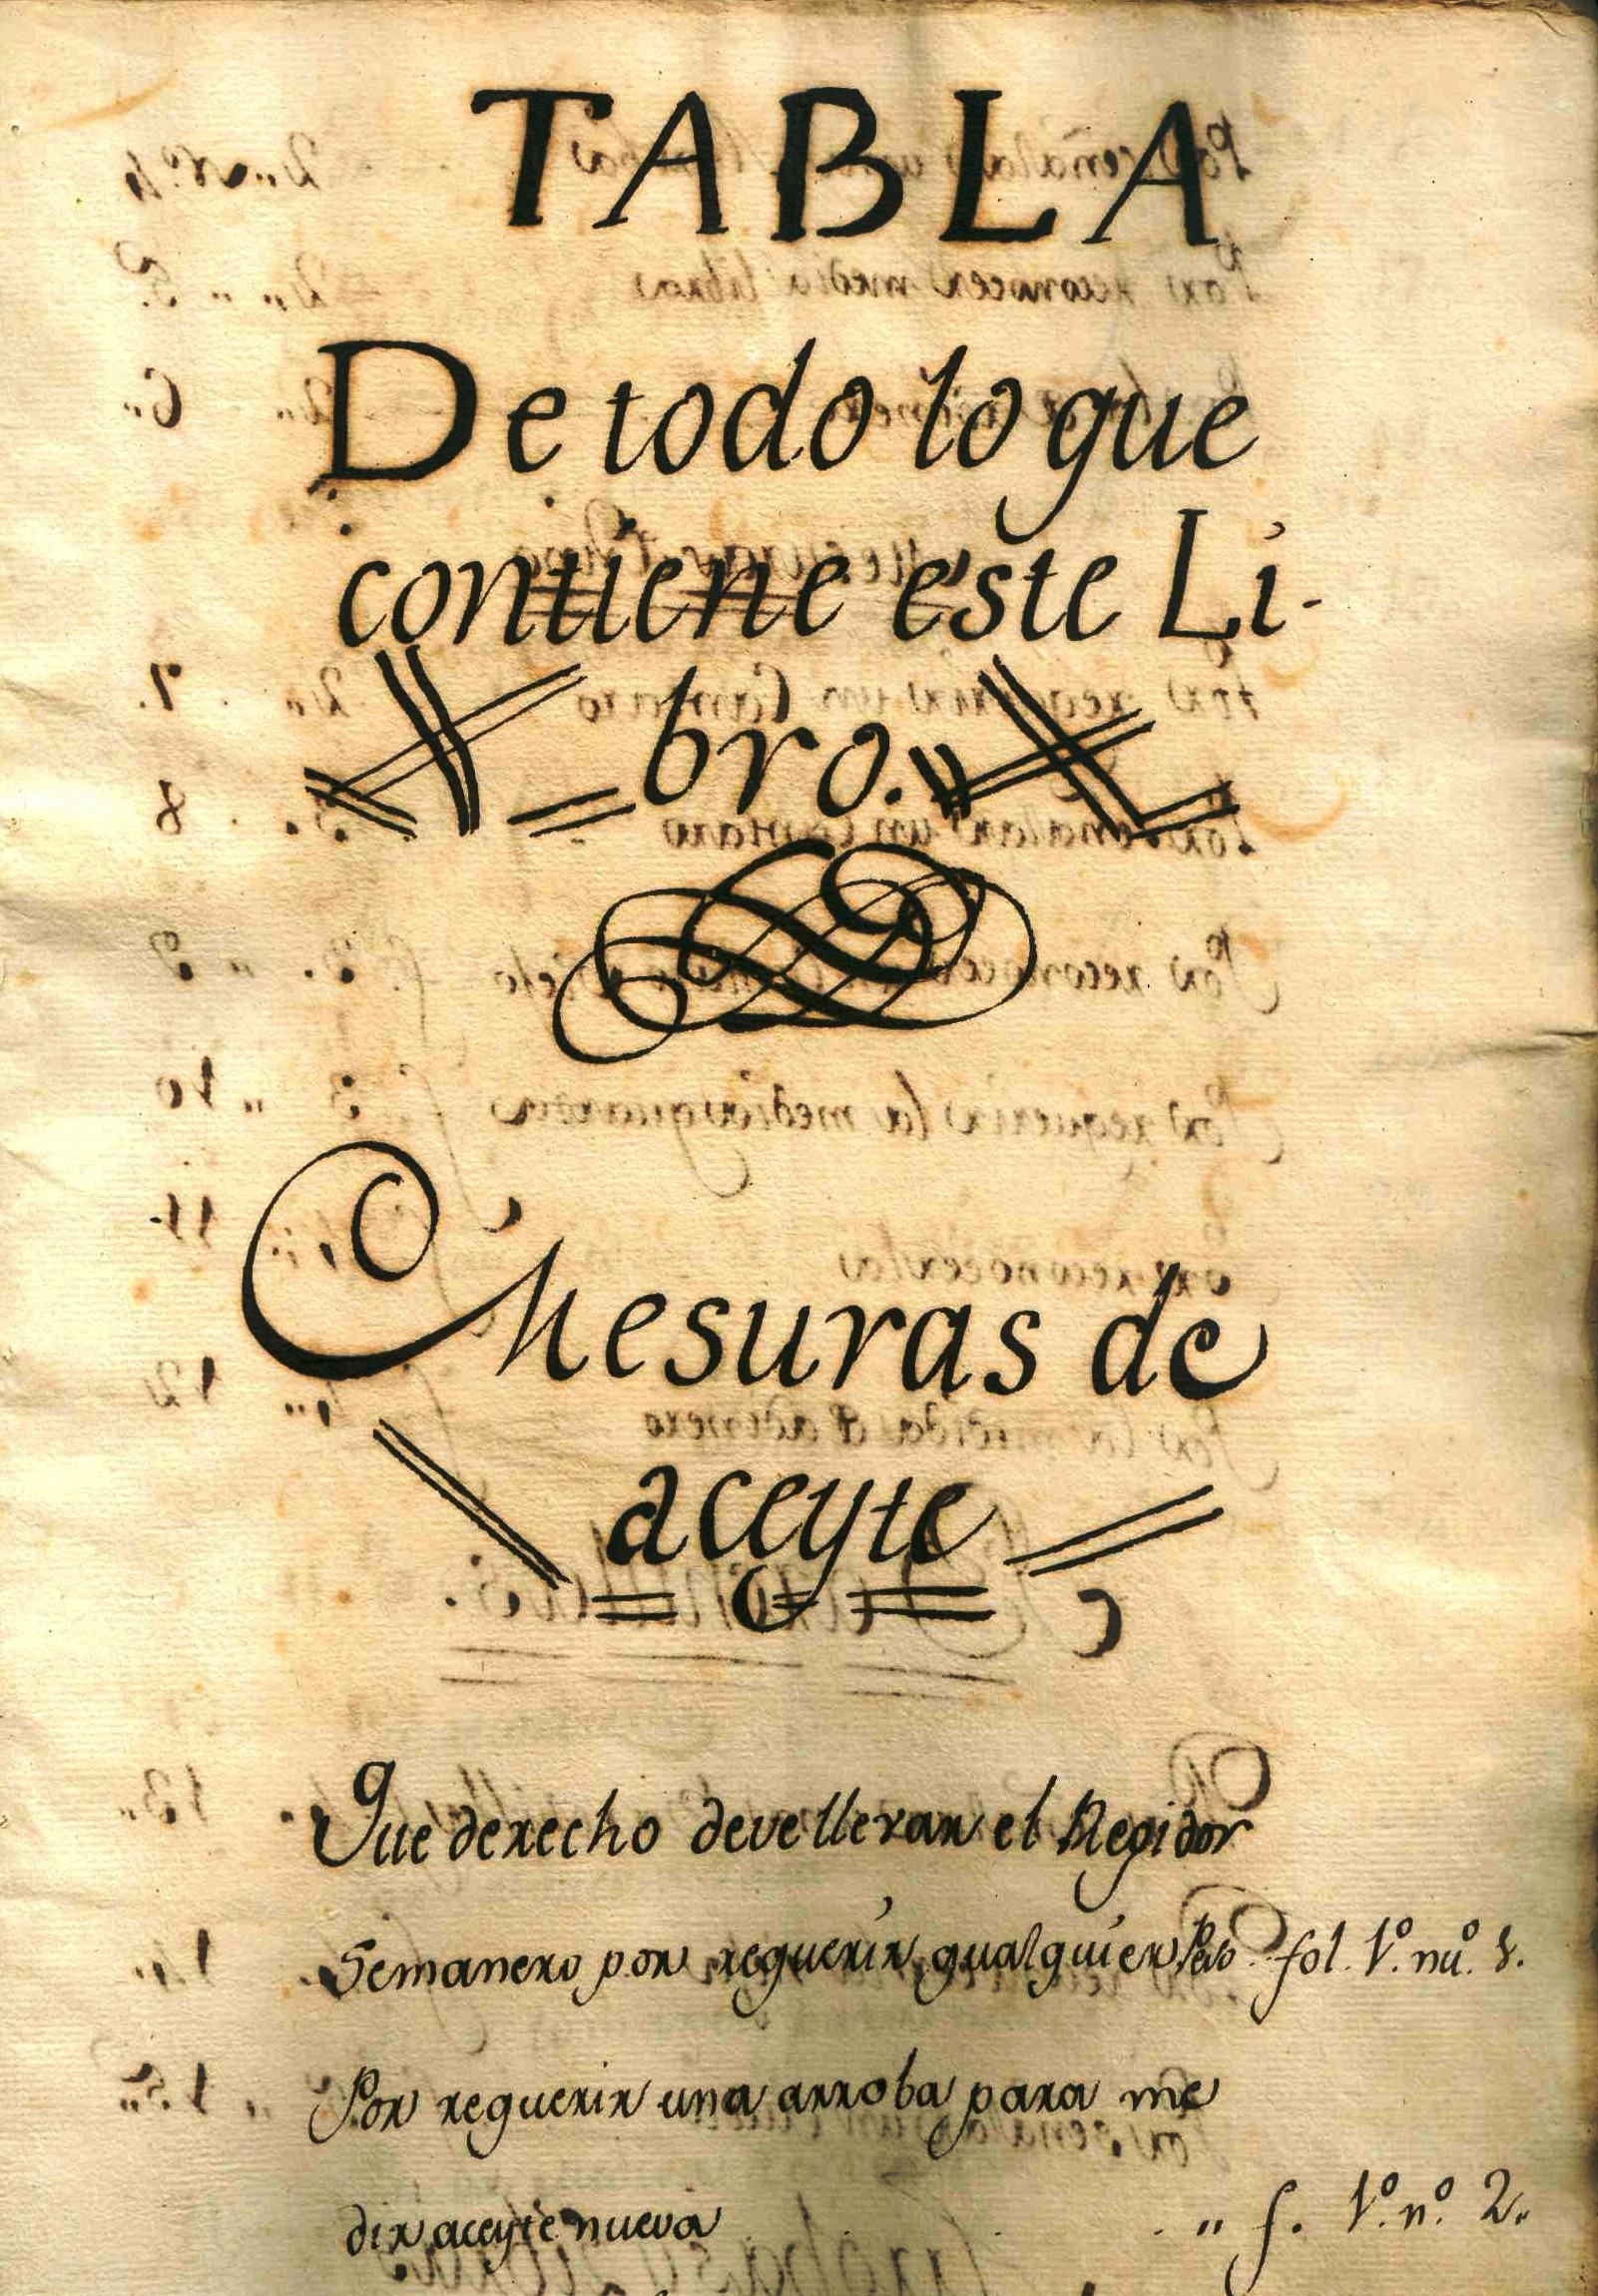 TABLA
De todo lo que
contiene este Li-
bro.
Mesuras de
aceyte
Que derecho deve llevar el Regidor
Semanero por requerir qualquier Peso. fol. 1º. nuº. 1.
Por requerir una arroba para me
dir aceyte nueva . . . " f. 1º. nº. 2"